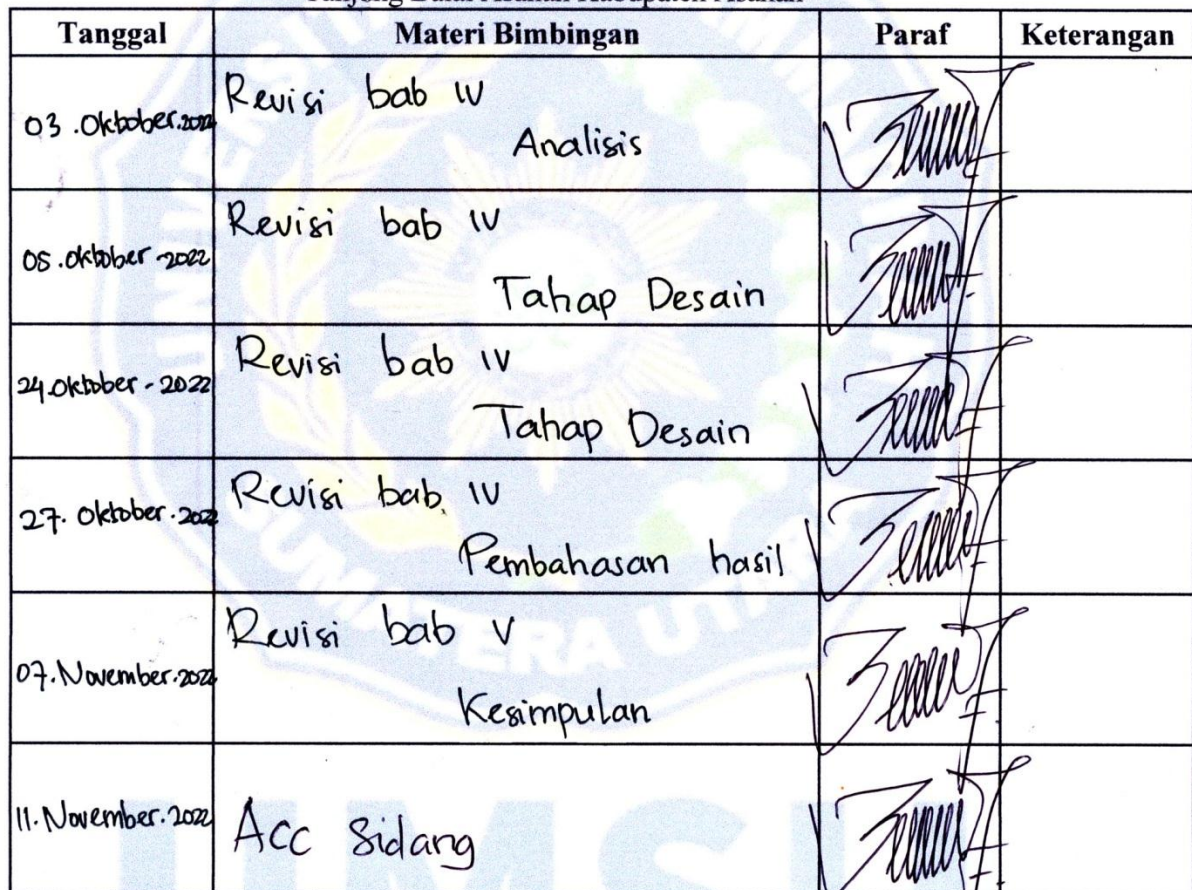 Tanjong Balai Asahan Kabupaten Asahan
Tanggal Materi Bimbingan Paraf Keterangan
03.Oktober.2022 Revisi bab IV
Analisis
05.Oktober-2022 Revisi bab IV
Tahap Desain
24.Oktober-2022 Revisi bab IV
Tahap Desain
27.Oktober.2022 Revisi bab IV
Pembahasan hasil
07.November.2022 Revisi bab V
Kesimpulan
11.November.2022 Acc Sidang
SUMATERA UTARA
UMSU